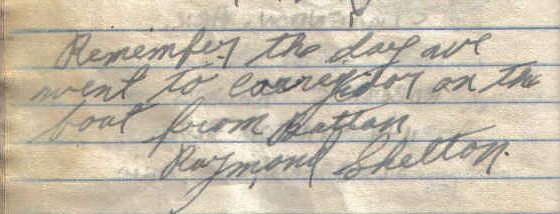 Remember the day we
went to corregidor on the
boat from Battan
Raymond Shelton.